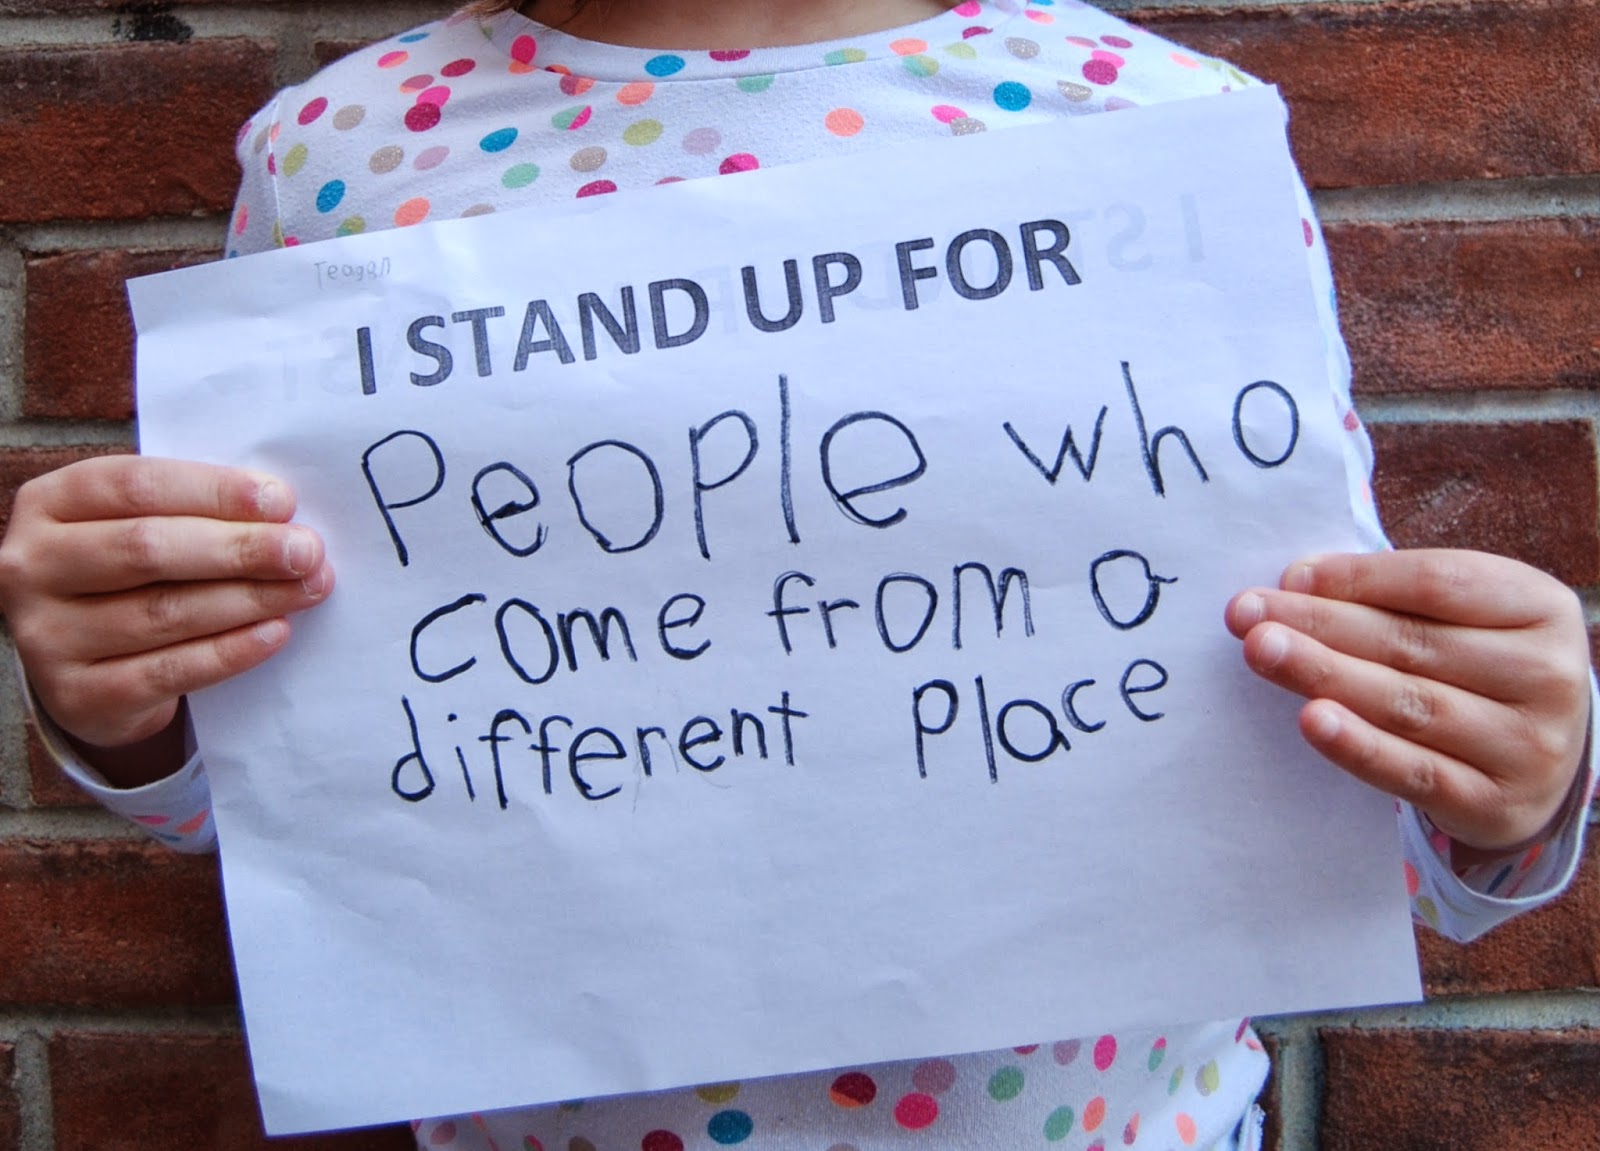 Teagan
I STAND UP FOR
People who
come from a
different place